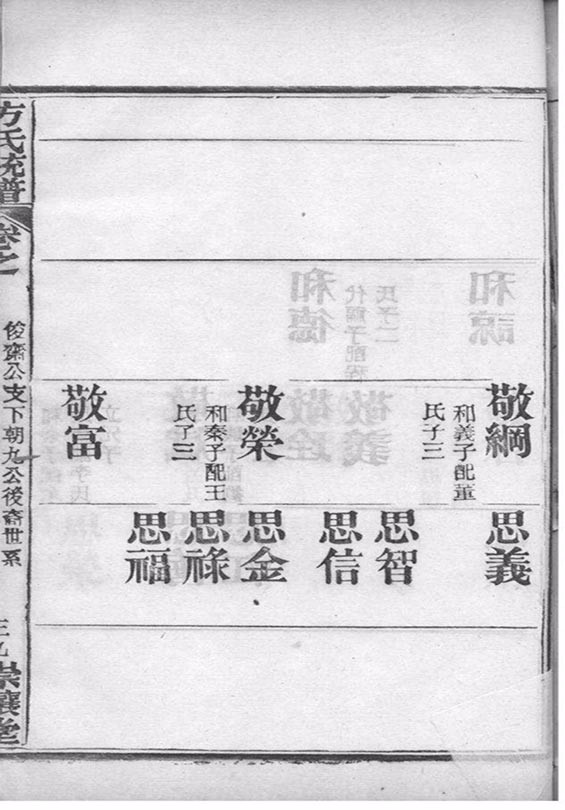 敬綱
和義子配董
氏子三
思義
思智
思信
敬榮
和秦子配王
氏子三
思金
思祿
思福
敬富
方氏統譜
卷之
俊齋公支下朝九公後裔世系
崇讓堂